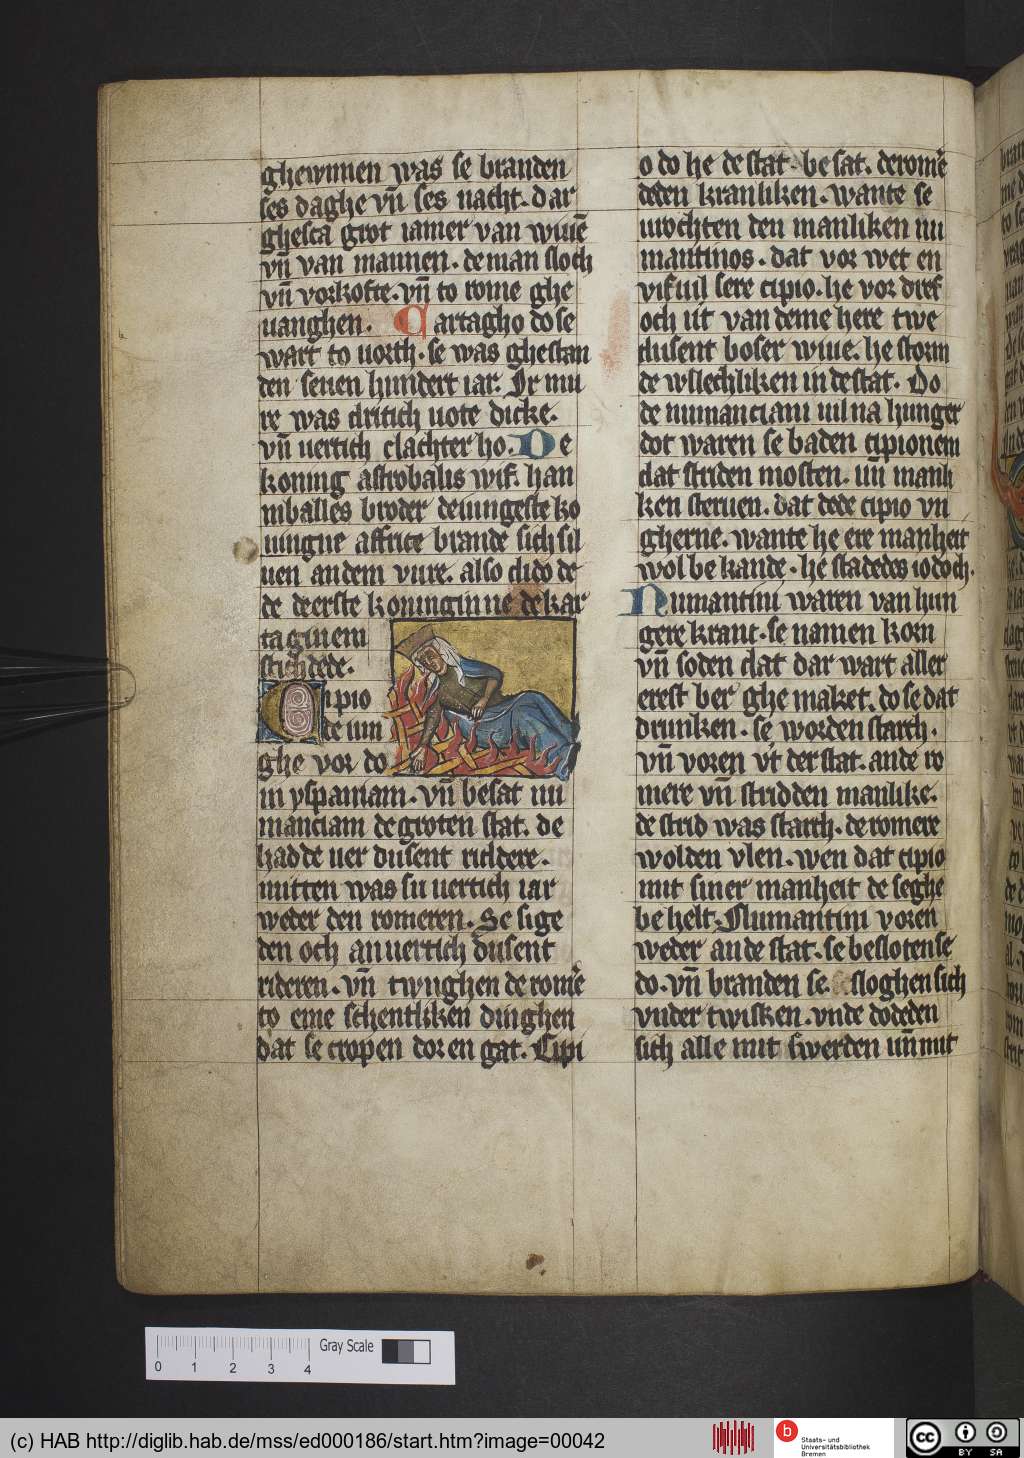 ghewinnen was se branden
ses daghe vn̄ ses nacht. dar
ghesca grot iamer van wiuē
vn̄ van mannen. de man sloch
vn̄ vorkofte. vn̄ to rome ghe
uanghen. Cartagho do se
wart to uorth. se was ghestan
den seuen hundert iar. Ir mu
re was dritich uote dicke.
vn̄ uertich clachter ho. De
koning astrobalis wif. han
niballes broder de iungeste ko
iungne affrice brande sich sil
uen an dem vure. also dido de
de de erste koninginne de kar
taginem
stich dede.
Cipio
de iun
ghe vor do
in yspaniam. vn̄ besat nu
manciam de groten stat. de
hadde uer dusent riddere.
mitten was su uertich iar
weder den romeren. Se sige
den och an uertich dusent
rideren. vn̄ twnghen de romē
to eme schentliken dinghen
dat se cropen dor en gat. Cipi
o do he de stat be sat. de romē
deden kranliken. wante se
uvochten den manliken nu
mantinos. dat vor wet en
vifuil sere cipio. he vor dref
och ut van deme here twe
dusent boser wiue. he storm
de wslechliken in de stat. Do
de numanciani uil na hunger
dot waren se baden cipionem
dat striden mosten. un̄ manli
ken steruen. dat dede cipio vn
gherne. wante he ere manheit
wol be kande. he stadedes iodoch.
Numantini waren van hun
gere krant. se namen korn
vn̄ soden dat dar wart aller
erest ber ghe maket. do se dat
drunken. se worden starch.
vn̄ voren vt der stat. an de ro
mere vn̄ stridden manlike.
de strid was starch. de romere
wolden vlen. wen dat cipio
mit siner manheit de seghe
be helt. Numantini voren
weder an de stat. se besloten se
do. vn̄ branden se. sloghen sich
vnder twisken. vnde dodeden
sich alle mit swerden un̄ mit
Gray Scale
0 1 2 3 4
(c) HAB http://diglib.hab.de/mss/ed000186/start.htm?image=00042
b
Staats- und
Universitätsbibliothek
Bremen
cc
BY SA